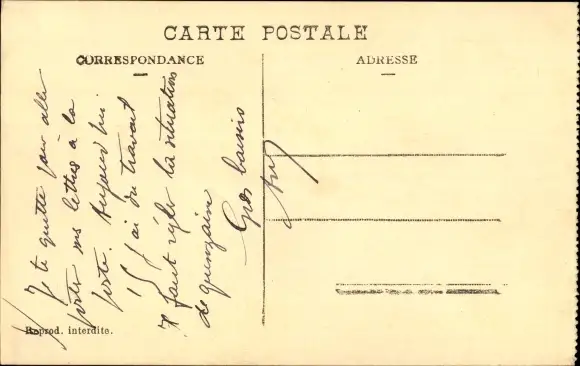 CARTE POSTALE
CORRESPONDANCE
ADRESSE
Je te quitte pour aller
porter mes lettres à la
poste. Aujourd'hui
j'ai du travail
Il faut régler les situations
de quinzaine
Gros baisers
Reprod. interdite.